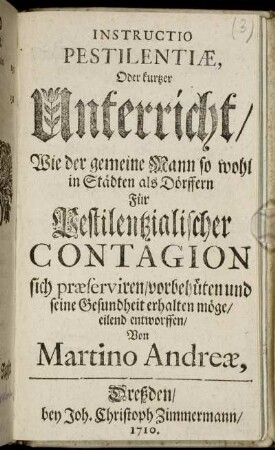 (3)
INSTRUCTIO
PESTILENTIÆ,
Oder kurtzer
Unterricht/
Wie der gemeine Mann so wohl
in Städten als Dörffern
Für
Pestilentzialischer
CONTAGION
sich præserviren/vorbehüten und
seine Gesundheit erhalten möge/
eilend entworffen/
Von
Martino Andreæ,
Dreßden/
bey Joh. Christoph Zimmermann/
1710.